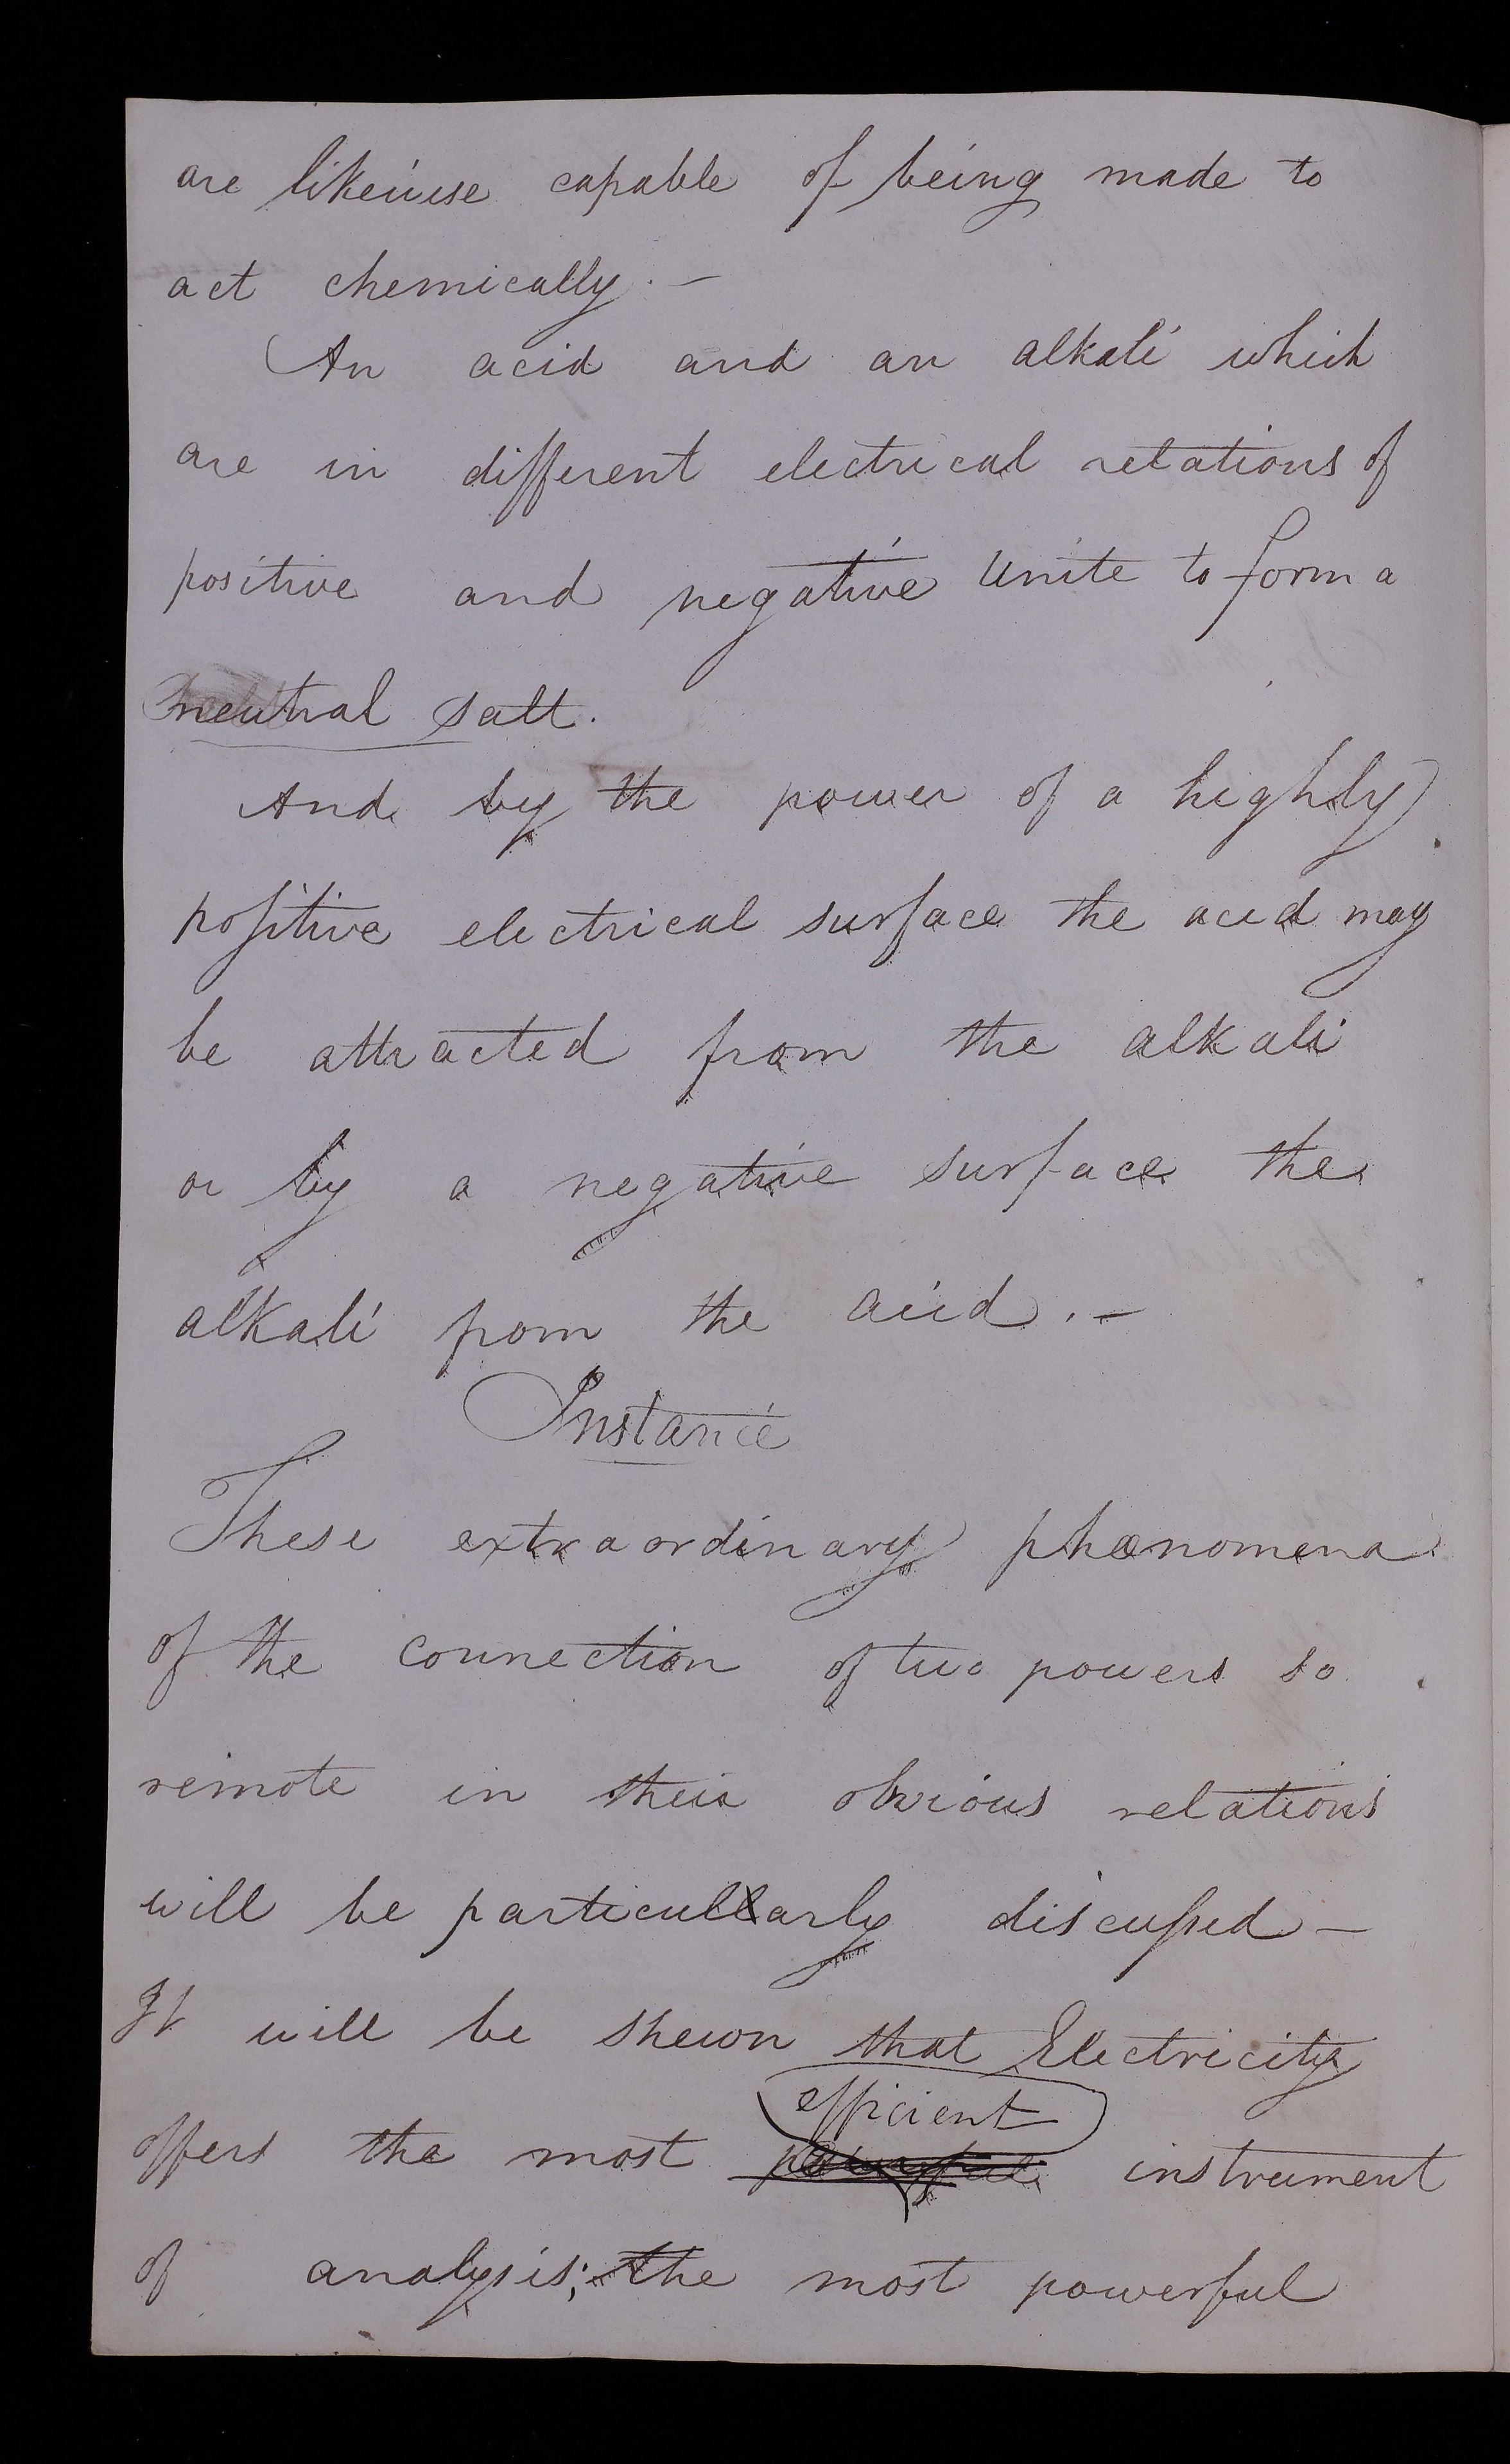 are likewise capable of being made to
act chemically. –
An acid and an alkali which
are in different electrical relations of
positive and negative unite to form a
neutral salt.
And by the power of a highly
positive electrical surface the acid may
be attracted from the alkali
or by a negative surface the
alkali from the acid. –
Instance
These extraordinary phœnomena
of the connection of two powers so
remote in their obvious relations
will be particullarly discussed –
It will be shewn that Electricity
efficient
offers the most powerful instrument
of analysis; the most powerful